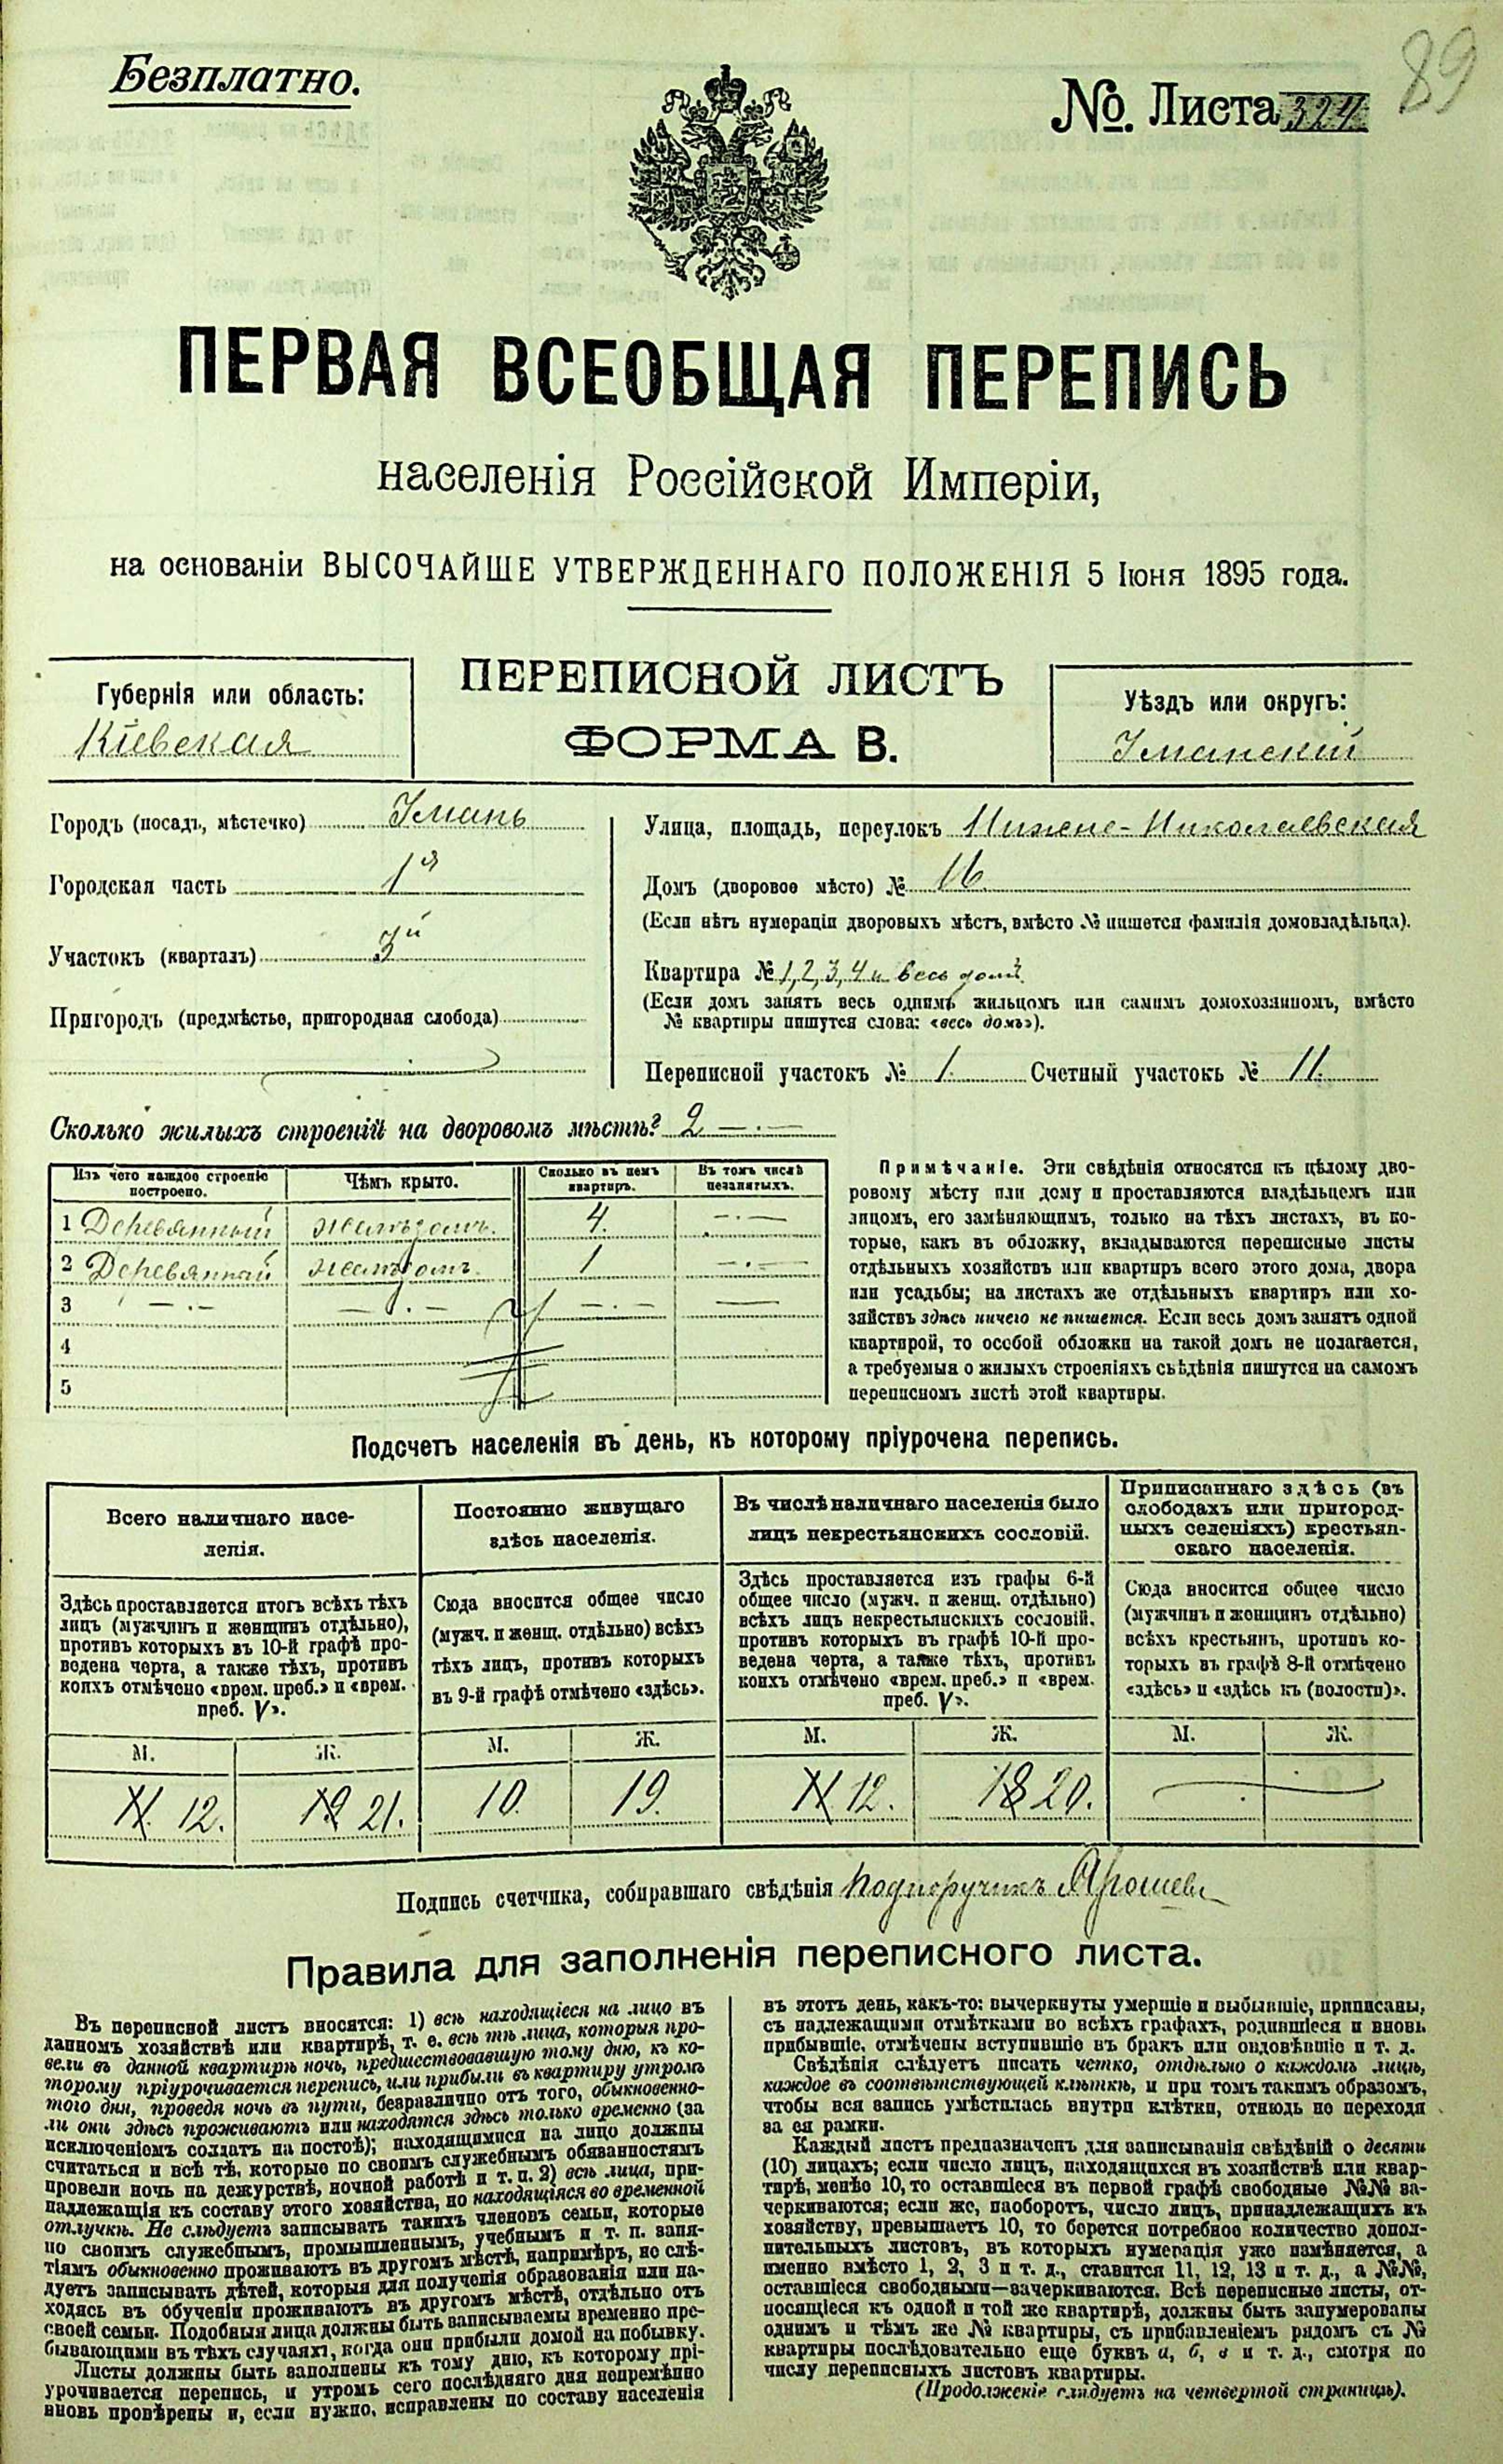 Безплатно.
№. Листа 324
89
ПЕРВАЯ ВСЕОБЩАЯ ПЕРЕПИСЬ
населенія Россійской Имперіи,
на основаніи ВЫСОЧАЙШЕ УТВЕРЖДЕННАГО ПОЛОЖЕНІЯ 5 Іюня 1895 года.
Губернія или область:
Кіевская
ПЕРЕПИСНОЙ ЛИСТЪ
ФОРМА В.
Уѣздъ или округъ:
Уманскій
Городъ (посадъ, мѣстечко) Умань
Городская часть 1я
Участокъ (кварталъ) 3й
Пригородъ (предмѣстье, пригородная слобода)
Улица, площадь, переулокъ Нижне-Николаевская
Домъ (дворовое мѣсто) № 16
(Если нѣтъ нумераціи дворовыхъ мѣстъ, вмѣсто № пишется фамилія домовладѣльца).
Квартира № 1, 2, 3, 4 и весь домъ
(Если домъ занятъ весь однимъ жильцомъ или самимъ домохозяиномъ, вмѣсто
№ квартиры пишутся слова: «весь домъ»).
Переписной участокъ № 1. Счетный участокъ № 11.
Сколько жилыхъ строеній на дворовомъ мѣстѣ? 2 —.—
Изъ чего каждое строеніе
построено.
Чѣмъ крыто.
Сколько въ немъ
квартиръ.
Въ томъ числѣ
незанятыхъ.
1 Деревянный желѣзомъ. 4. —.—
2 Деревянный желѣзомъ. 1 —.—
3 —.— —.— —.— —
4
5
Примѣчаніе. Эти свѣдѣнія относятся къ цѣлому дво-
ровому мѣсту или дому и проставляются владѣльцемъ или
лицомъ, его замѣняющимъ, только на тѣхъ листахъ, въ ко-
торые, какъ въ обложку, вкладываются переписные листы
отдѣльныхъ хозяйствъ или квартиръ всего этого дома, двора
или усадьбы; на листахъ же отдѣльныхъ квартиръ или хо-
зяйствъ здѣсь ничего не пишется. Если весь домъ занятъ одной
квартирой, то особой обложки на такой домъ не полагается,
а требуемыя о жилыхъ строеніяхъ свѣдѣнія пишутся на самомъ
переписномъ листѣ этой квартиры.
Подсчетъ населенія въ день, къ которому пріурочена перепись.
Всего наличнаго насе-
ленія.
Здѣсь проставляется итогъ всѣхъ тѣхъ
лицъ (мужчинъ и женщинъ отдѣльно),
противъ которыхъ въ 10-й графѣ про-
ведена черта, а также тѣхъ, противъ
коихъ отмѣчено «врем. преб.» и «врем.
преб. V».
М. Ж.
11. 12. 19 21.
Постоянно живущаго
здѣсь населенія.
Сюда вносится общее число
(мужч. и женщ. отдѣльно) всѣхъ
тѣхъ лицъ, противъ которыхъ
въ 9-й графѣ отмѣчено «здѣсь».
М. Ж.
10. 19.
Въ числѣ наличнаго населенія было
лицъ некрестьянскихъ сословій.
Здѣсь проставляется изъ графы 6-й
общее число (мужч. и женщ. отдѣльно)
всѣхъ лицъ некрестьянскихъ сословій,
противъ которыхъ въ графѣ 10-й про-
ведена черта, а также тѣхъ, противъ
коихъ отмѣчено «врем. преб.» и «врем.
преб. V».
М. Ж.
11 12. 18 20.
Приписаннаго здѣсь (въ
слободахъ или пригород-
ныхъ селеніяхъ) крестьян-
скаго населенія.
Сюда вносится общее число
(мужчинъ и женщинъ отдѣльно)
всѣхъ крестьянъ, противъ ко-
торыхъ въ графѣ 8-й отмѣчено
«здѣсь» и «здѣсь къ (волости)».
М. Ж.
Подпись счетчика, собиравшаго свѣдѣнія Подпоручикъ
Правила для заполненія переписного листа.
Въ переписной листъ вносятся: 1) всѣ находящіеся на лицо въ
данномъ хозяйствѣ или квартирѣ, т. е. всѣ тѣ лица, которыя про-
вели въ данной квартирѣ ночь, предшествовавшую тому дню, къ ко-
торому пріурочивается перепись, или прибыли въ квартиру утромъ
того дня, проведя ночь въ пути, безразлично отъ того, обыкновенно-
ли они здѣсь проживаютъ или находятся здѣсь только временно (за
исключеніемъ солдатъ на постоѣ); находящимися на лицо должны
считаться и всѣ тѣ, которые по своимъ служебнымъ обязанностямъ
провели ночь на дежурствѣ, ночной работѣ и т. п. 2) всѣ лица, при-
надлежащія къ составу этого хозяйства, но находящіяся во временной
отлучкѣ. Не слѣдуетъ записывать такихъ членовъ семьи, которые
по своимъ служебнымъ, промышленнымъ, учебнымъ и т. п. заня-
тіямъ обыкновенно проживаютъ въ другомъ мѣстѣ, напримѣръ, не слѣ-
дуетъ записывать дѣтей, которыя для полученія образованія или на-
ходясь въ обученіи проживаютъ въ другомъ мѣстѣ, отдѣльно отъ
своей семьи. Подобныя лица должны быть записываемы временно пре-
бывающими въ тѣхъ случаяхъ, когда они прибыли домой на побывку.
Листы должны быть заполнены къ тому дню, къ которому прі-
урочивается перепись, и утромъ сего послѣдняго дня непремѣнно
вновь провѣрены и, если нужно, исправлены по составу населенія
въ этотъ день, какъ-то: вычеркнуты умершіе и выбывшіе, приписаны,
съ надлежащими отмѣтками во всѣхъ графахъ, родившіеся и вновь
прибывшіе, отмѣчены вступившіе въ бракъ или овдовѣвшіе и т. д.
Свѣдѣнія слѣдуетъ писать четко, отдѣльно о каждомъ лицѣ,
каждое въ соотвѣтствующей клѣткѣ, и при томъ такимъ образомъ,
чтобы вся запись умѣстилась внутри клѣтки, отнюдь не переходя
за ея рамки.
Каждый листъ предназначенъ для записыванія свѣдѣній о десяти
(10) лицахъ; если число лицъ, находящихся въ хозяйствѣ или квар-
тирѣ, менѣе 10, то оставшіеся въ первой графѣ свободные №№ за-
черкиваются; если же, наоборотъ, число лицъ, принадлежащихъ къ
хозяйству, превышаетъ 10, то берется потребное количество допол-
нительныхъ листовъ, въ которыхъ нумерація уже измѣняется, а
именно вмѣсто 1, 2, 3 и т. д., ставится 11, 12, 13 и т. д., а №№,
оставшіеся свободными—зачеркиваются. Всѣ переписные листы, от-
носящіеся къ одной и той же квартирѣ, должны быть занумерованы
однимъ и тѣмъ же № квартиры, съ прибавленіемъ рядомъ съ №
квартиры послѣдовательно еще буквъ а, б, в и т. д., смотря по
числу переписныхъ листовъ квартиры.
(Продолженіе слѣдуетъ на четвертой страницѣ).